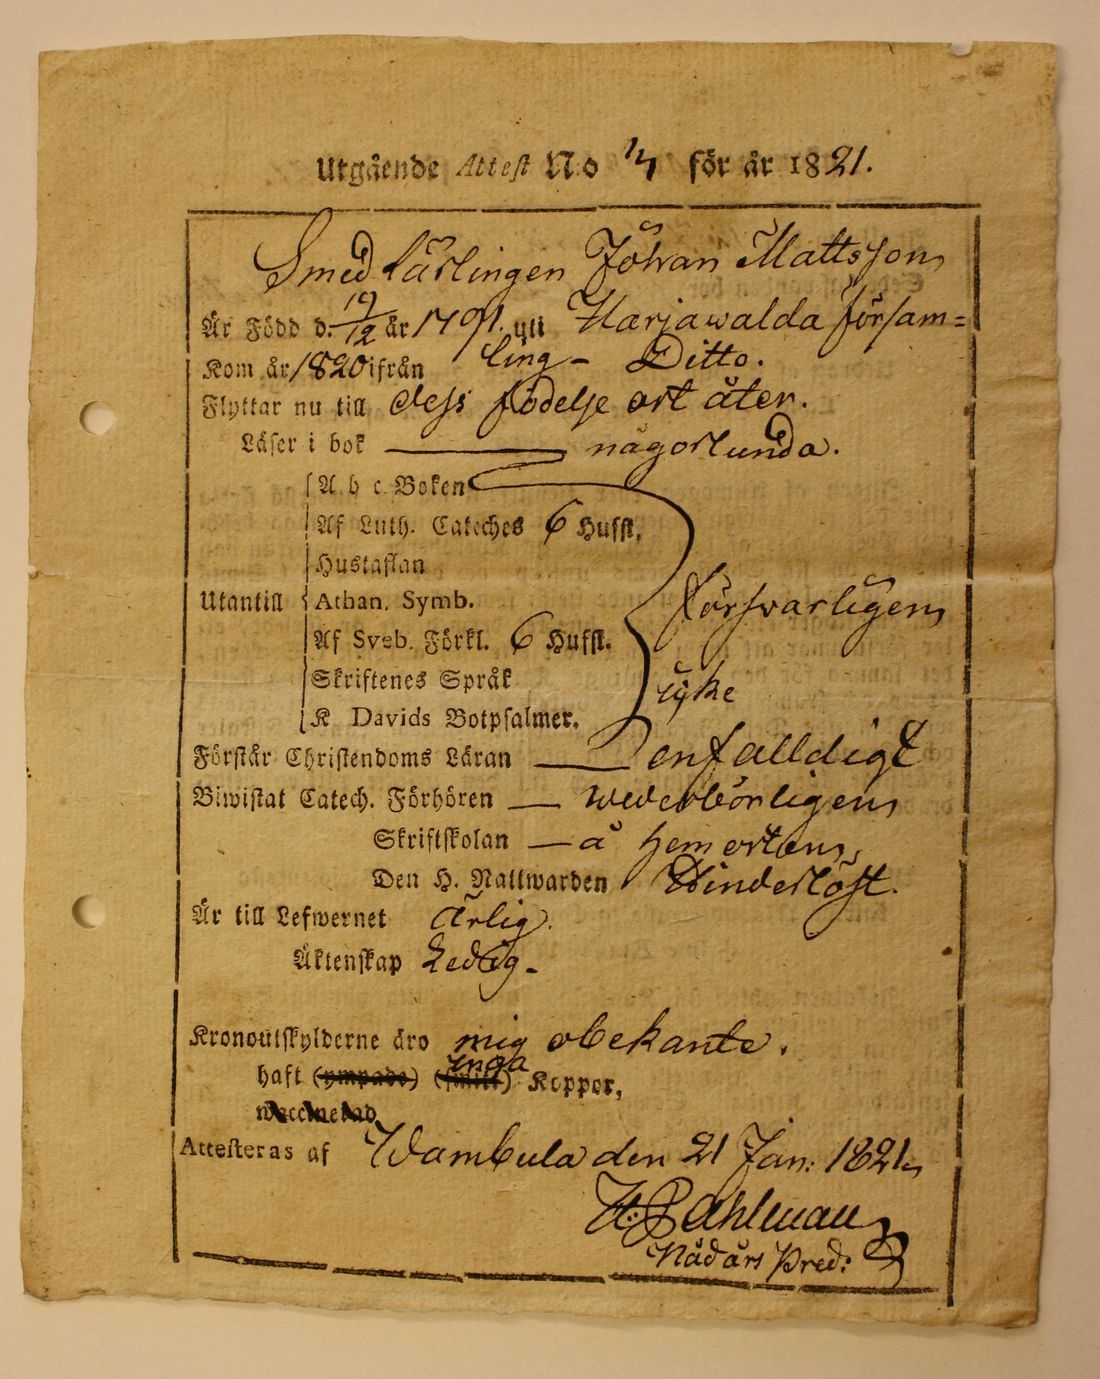 Utgående Attest N:o 14 för år 1821.
Smed lärlingen Johan Mattsson
Är Född d. 19/12 år 1791. uti Harjawalda församling -
Kom år 1820 ifrån Ditto.
Flyttar nu till dess födelse ort åter.
Läser i bok — någorlunda.
A. b c. Boken
Af Luth. Cateches 6 Hufst.
Hustaflan
Utantill Athan. Symb. försvarligen
Af Sveb. Förkl. 6 Hufst.
Skriftenes Språk icke
K Davids Botpsalmer.
Förstår Christendoms Läran — enfalldigt
Biwistat Catech. Förhören — wederbörligen
Skriftskolan — å hemorten,
Den H. Nattwarden Hinderlöst.
Är till Lefwernet Ärlig.
Äktenskap Ledig -
Kronoutskylderne äro mig obekante.
inga
haft (ympade) Koppor,
waccinerad
Attesteras af Wambula den 21 Jan: 1821
Pahlman
Nådårs Pred: